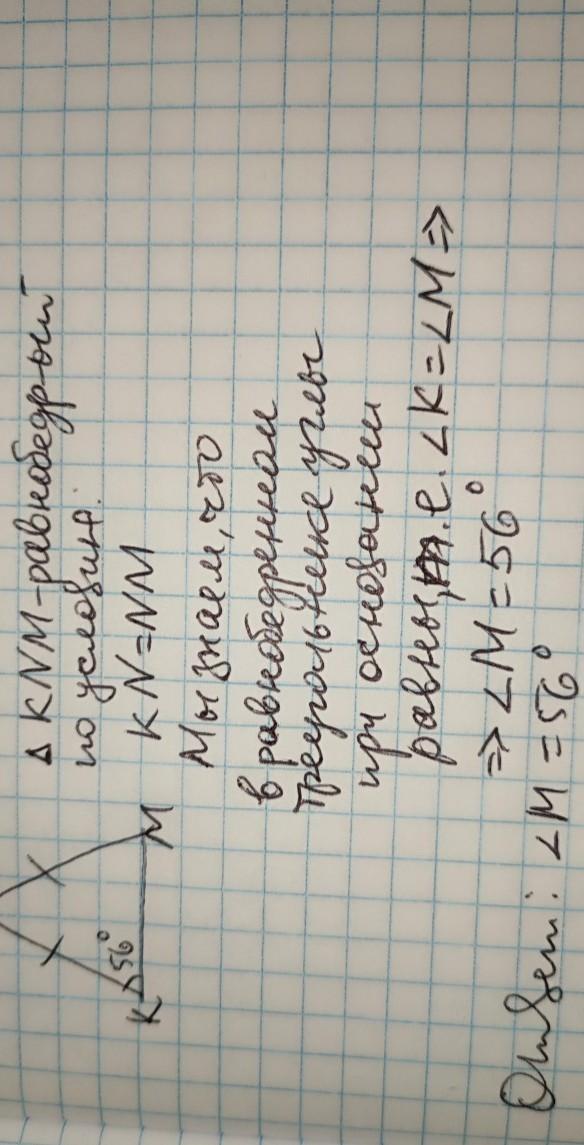 Δ KNM-равнобедр-ый
по условию.
KN=NM
Мы знаем, что
в равнобедренном
треугольнике углы
при основании
равны, т.е. ∠K=∠M⇒
⇒∠M=56°
K 56° M
Ответ: ∠M=56°